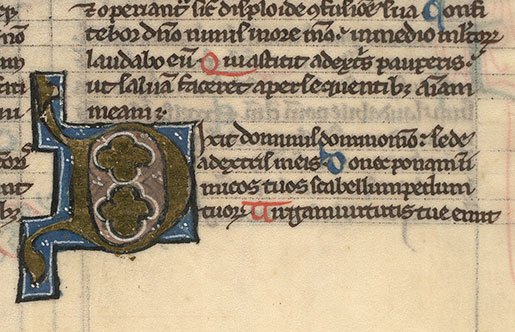 ⁊ operiant᷑ sic̄ disploide ꝯfusiōe sua Confi
tebor dn̄o nimis inore mō: inmedio ml̄toꝝ
laudabo eū Quia astitit adext̄s paup̱eris:
ut saluā faceret apersequentibꝫ aīam
meam:
Dixit dominus domino mō: sede
adextris meis Donec ponam ī
imicos tuos scabellum pedum
tuoꝝ Uirgam uirtutis tue emit